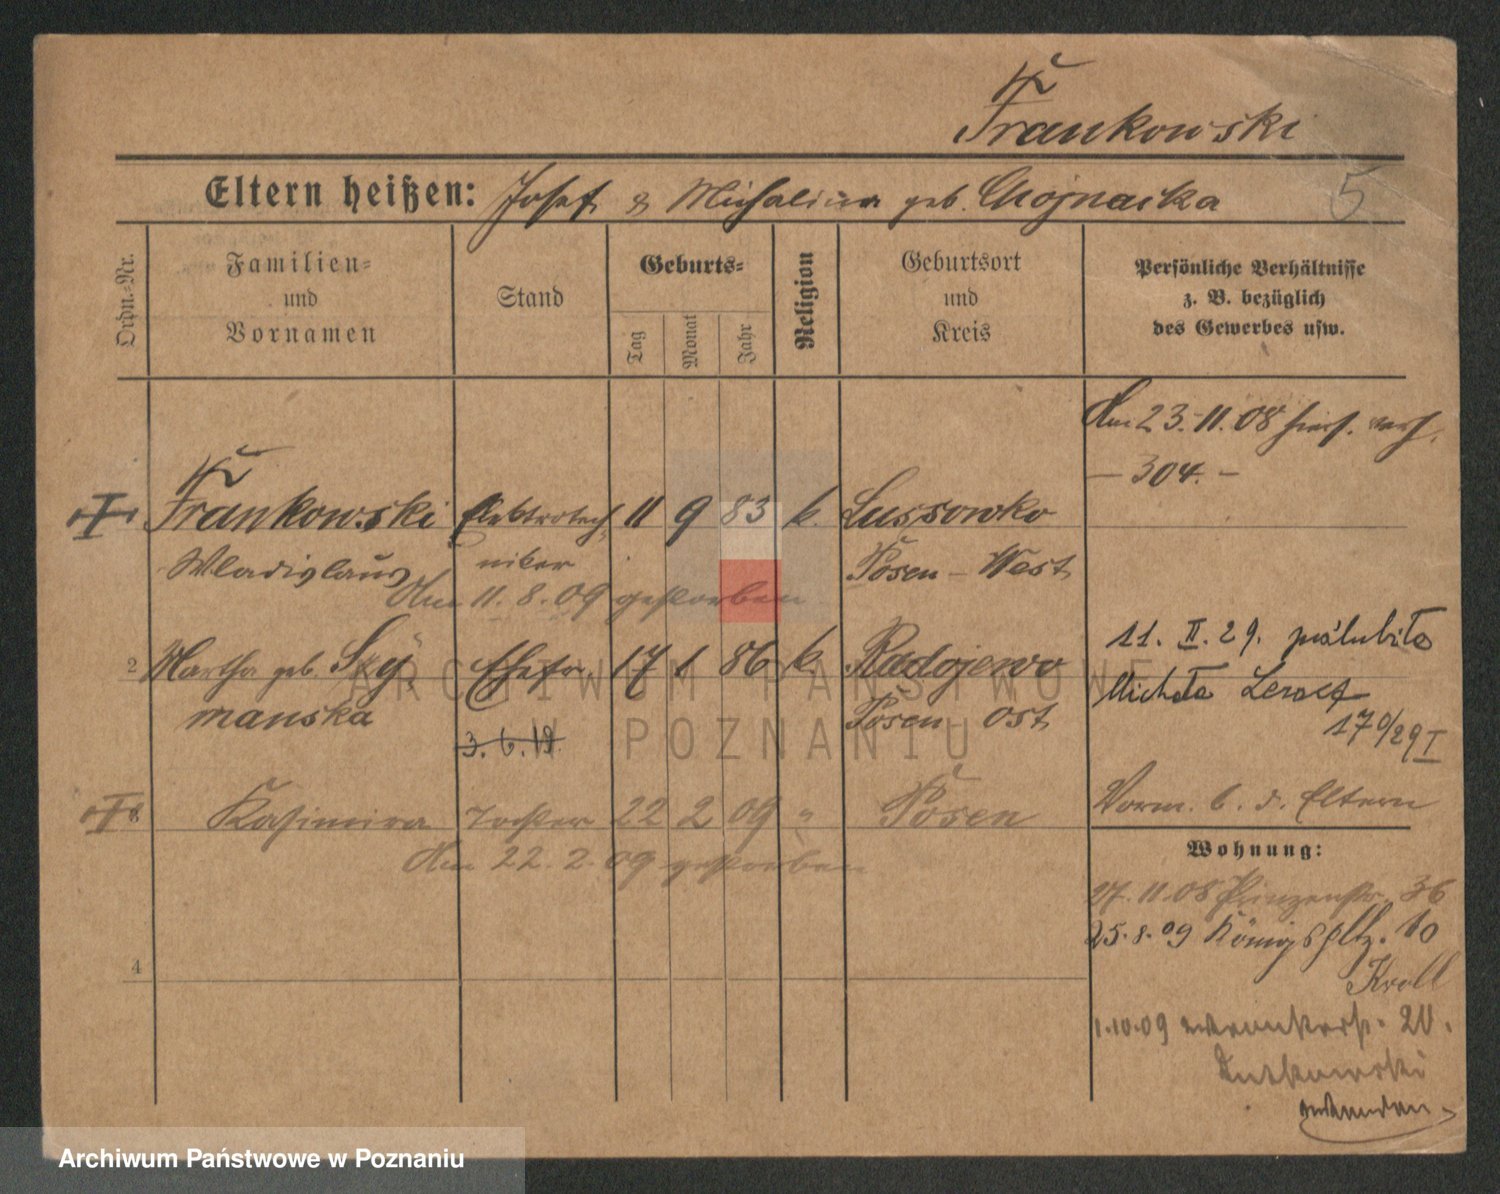 Frankowski
Eltern heißen: Josef & Michalina geb. Chojnacka 5
Ordn.-Nr. Familien- und Vornamen Stand Geburts- Tag Monat Jahr Religion Geburtsort und Kreis Persönliche Verhältnisse z. B. bezüglich des Gewerbes usw.
Am 23.11.08 hies. verh.
- 304. -
Frankowski Elektrotech 11 9 83 k. Lussowko
Wladislaus niker Posen - West
Am 11.8.09 gestorben
11. II. 29. poślubiła
2 Martha geb. Szy Ehefr. 17 1 86 k. Radojewo
Michała
manska Posen Ost
3. 6. 19.
170/29 I
3 Kasimira Tochter 22 2 09 " Posen
Vorm. b. d. Eltern
Am 22.2.09 gestorben
Wohnung:
27.11.08 Prinzenstr. 36
25.8.09 Königspltz. 10
Kroll
4
1.10.09 20.
Archiwum Państwowe w Poznaniu
ARCHIWUM PAŃSTWOWE
W POZNANIU